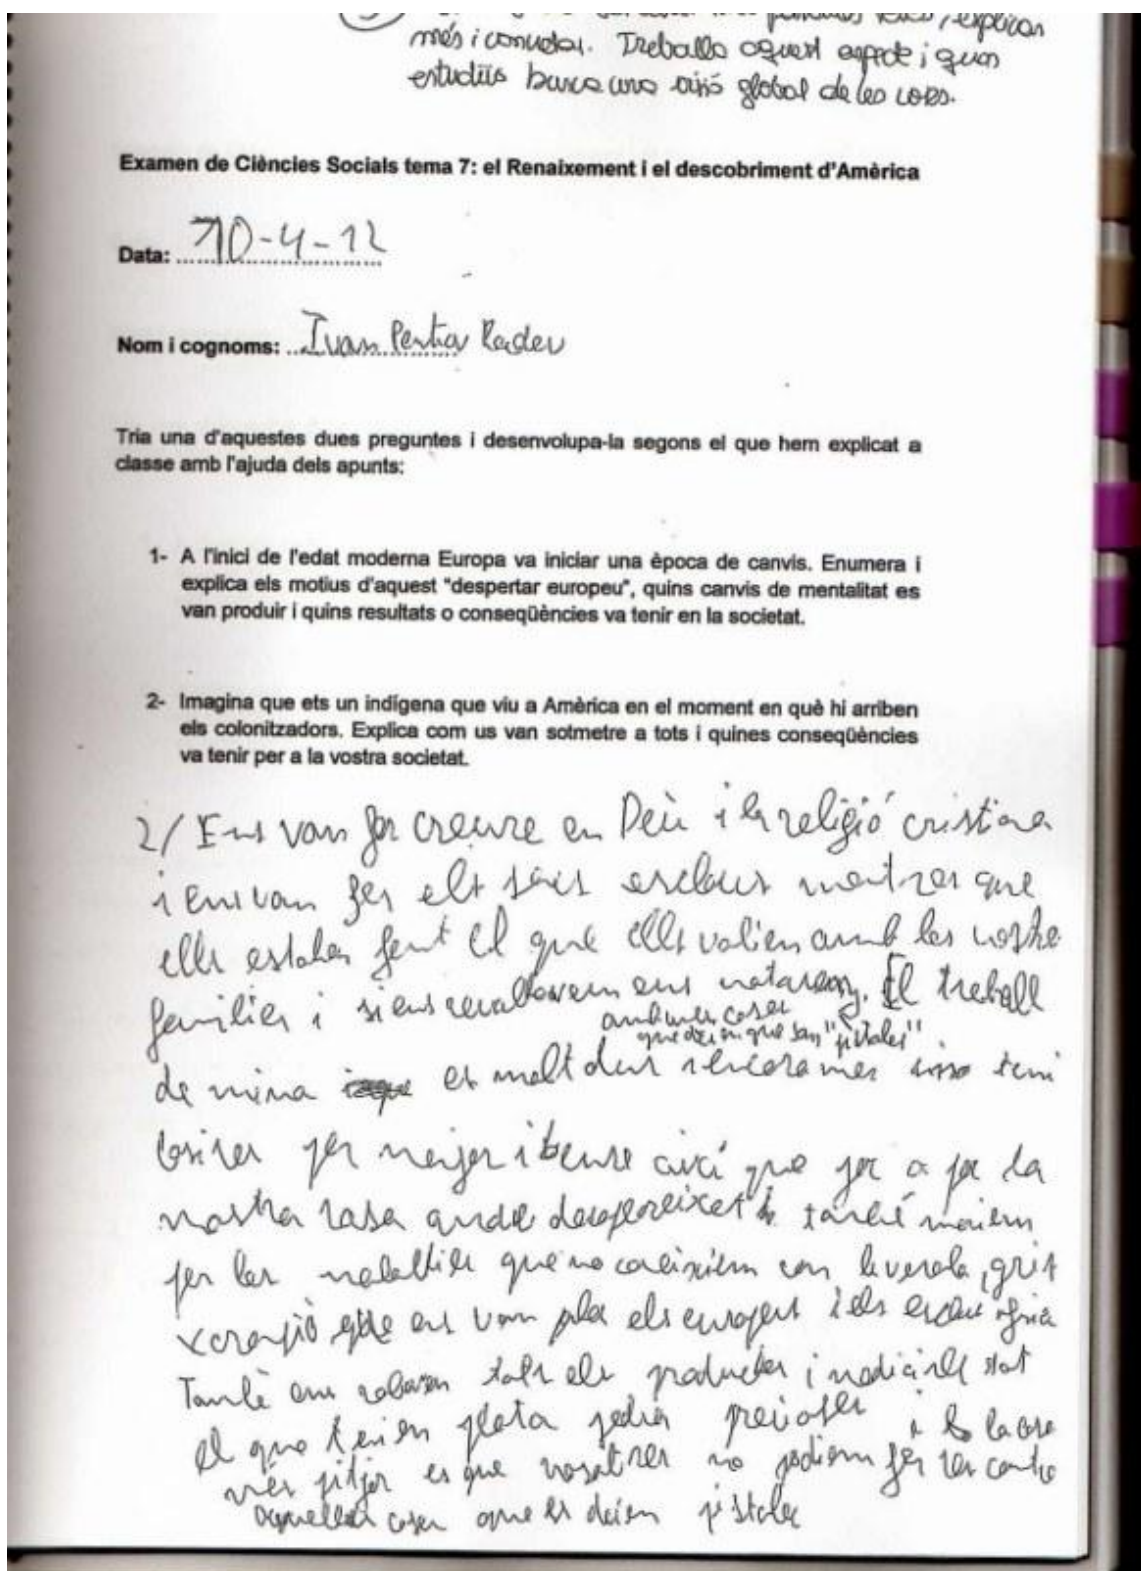 explicar
més i connectar. Treballa aquest aspecte i quan
estudiïs busca una visió global de les coses.
Examen de Ciències Socials tema 7: el Renaixement i el descobriment d'Amèrica
Data: 10-4-12
Nom i cognoms: Ivan Radev
Tria una d'aquestes dues preguntes i desenvolupa-la segons el que hem explicat a
classe amb l'ajuda dels apunts:
1- A l'inici de l'edat moderna Europa va iniciar una època de canvis. Enumera i
explica els motius d'aquest "despertar europeu", quins canvis de mentalitat es
van produir i quins resultats o conseqüències va tenir en la societat.
2- Imagina que ets un indígena que viu a Amèrica en el moment en què hi arriben
els colonitzadors. Explica com us van sotmetre a tots i quines conseqüències
va tenir per a la vostra societat.
2/ Ens van fer creure en Deù i la religió cristiana
i ens van fer els seus esclaus mentres que
ells estaben fent el que ells volien amb les nostre
families i si ens revaltavem ens mataven. El treball
amb unes coses
que deien que son "pistoles"
de mina es molt dur i encara mes sino teni
per menjar i beure així que poc a poc la
nostra rasa desapareixet també moriem
per les malalties que no coneixiem com la verola, grip
que ens van els europeus i els esclaus
També ens robaven tots els productes i
el que tenien plata pedra precioses i la cosa
més pitjor es que nosaltres no podiem fer res contra
aquelles coses que es deien pistoles